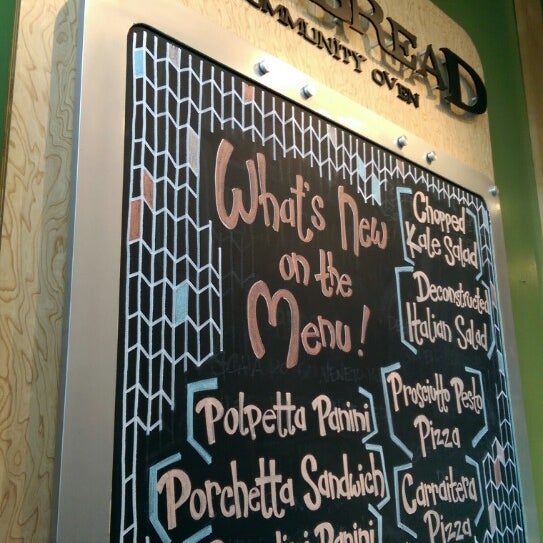 BREAD
COMMUNITY OVEN
What's New
on the
Menu!
Polpetta Panini
Porchetta Sandwich
Panini
Chopped
Kale Salad
Deconstructed
Italian Salad
Prosciutto Pesto
Pizza
Carraitera
Pizza